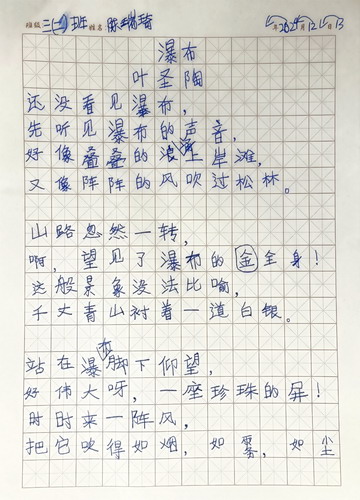 班级 三(二)班 姓名 陈瑞琦 年2024月12日13
瀑布
叶圣陶
还没看见瀑布，
先听见瀑布的声音，
好像叠叠的浪涌上岸滩，
又像阵阵的风吹过松林。
山路忽然一转，
啊，望见了瀑布的金全身！
这般景象没法比喻，
千丈青山衬着一道白银。
站在瀑布脚下仰望，
好伟大呀，一座珍珠的屏！
时时来一阵风，
把它吹得如烟，如雾，如尘